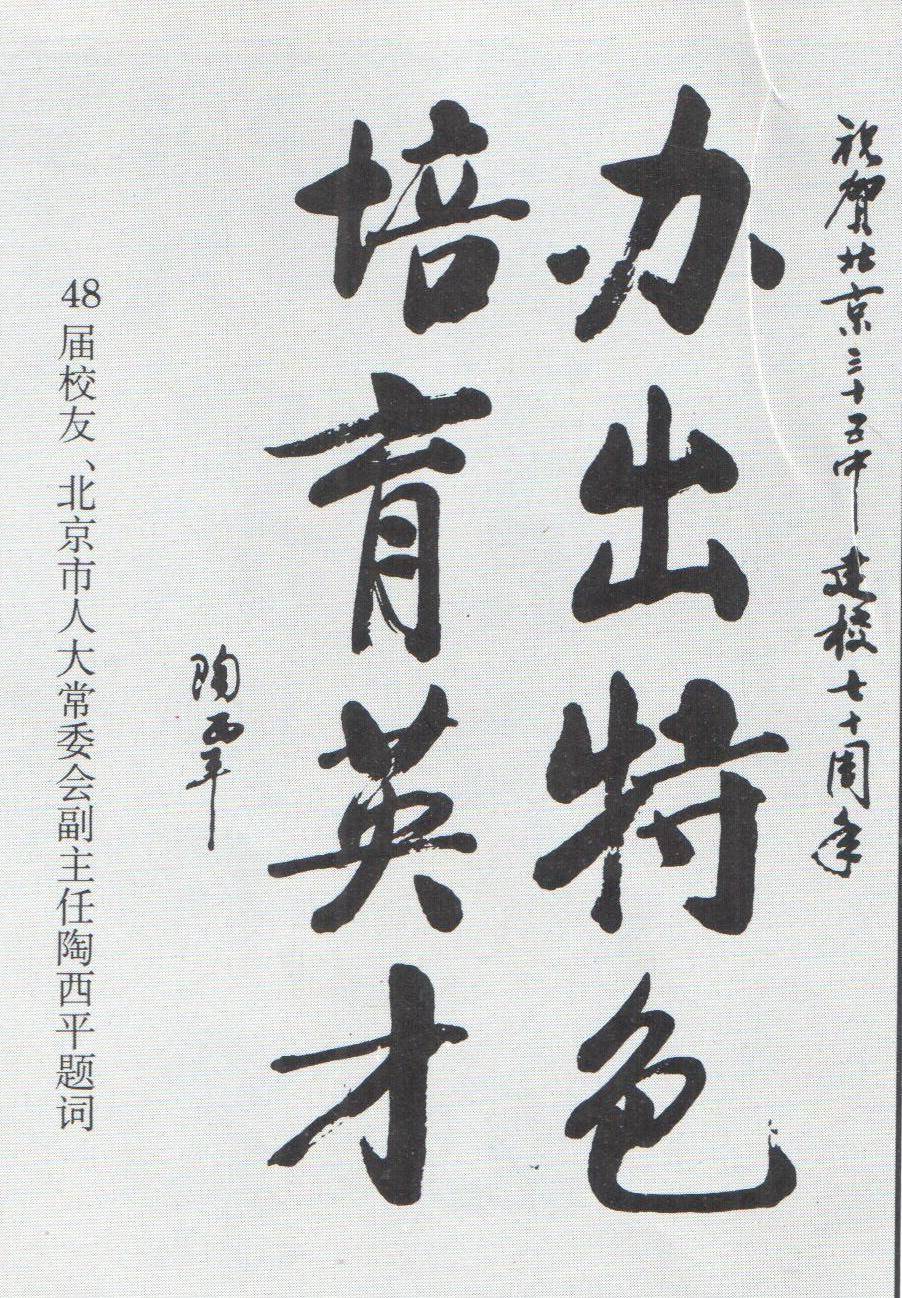 祝贺北京三十五中建校七十周年
办出特色
培育英才
陶西平
48届校友、北京市人大常委会副主任陶西平题词